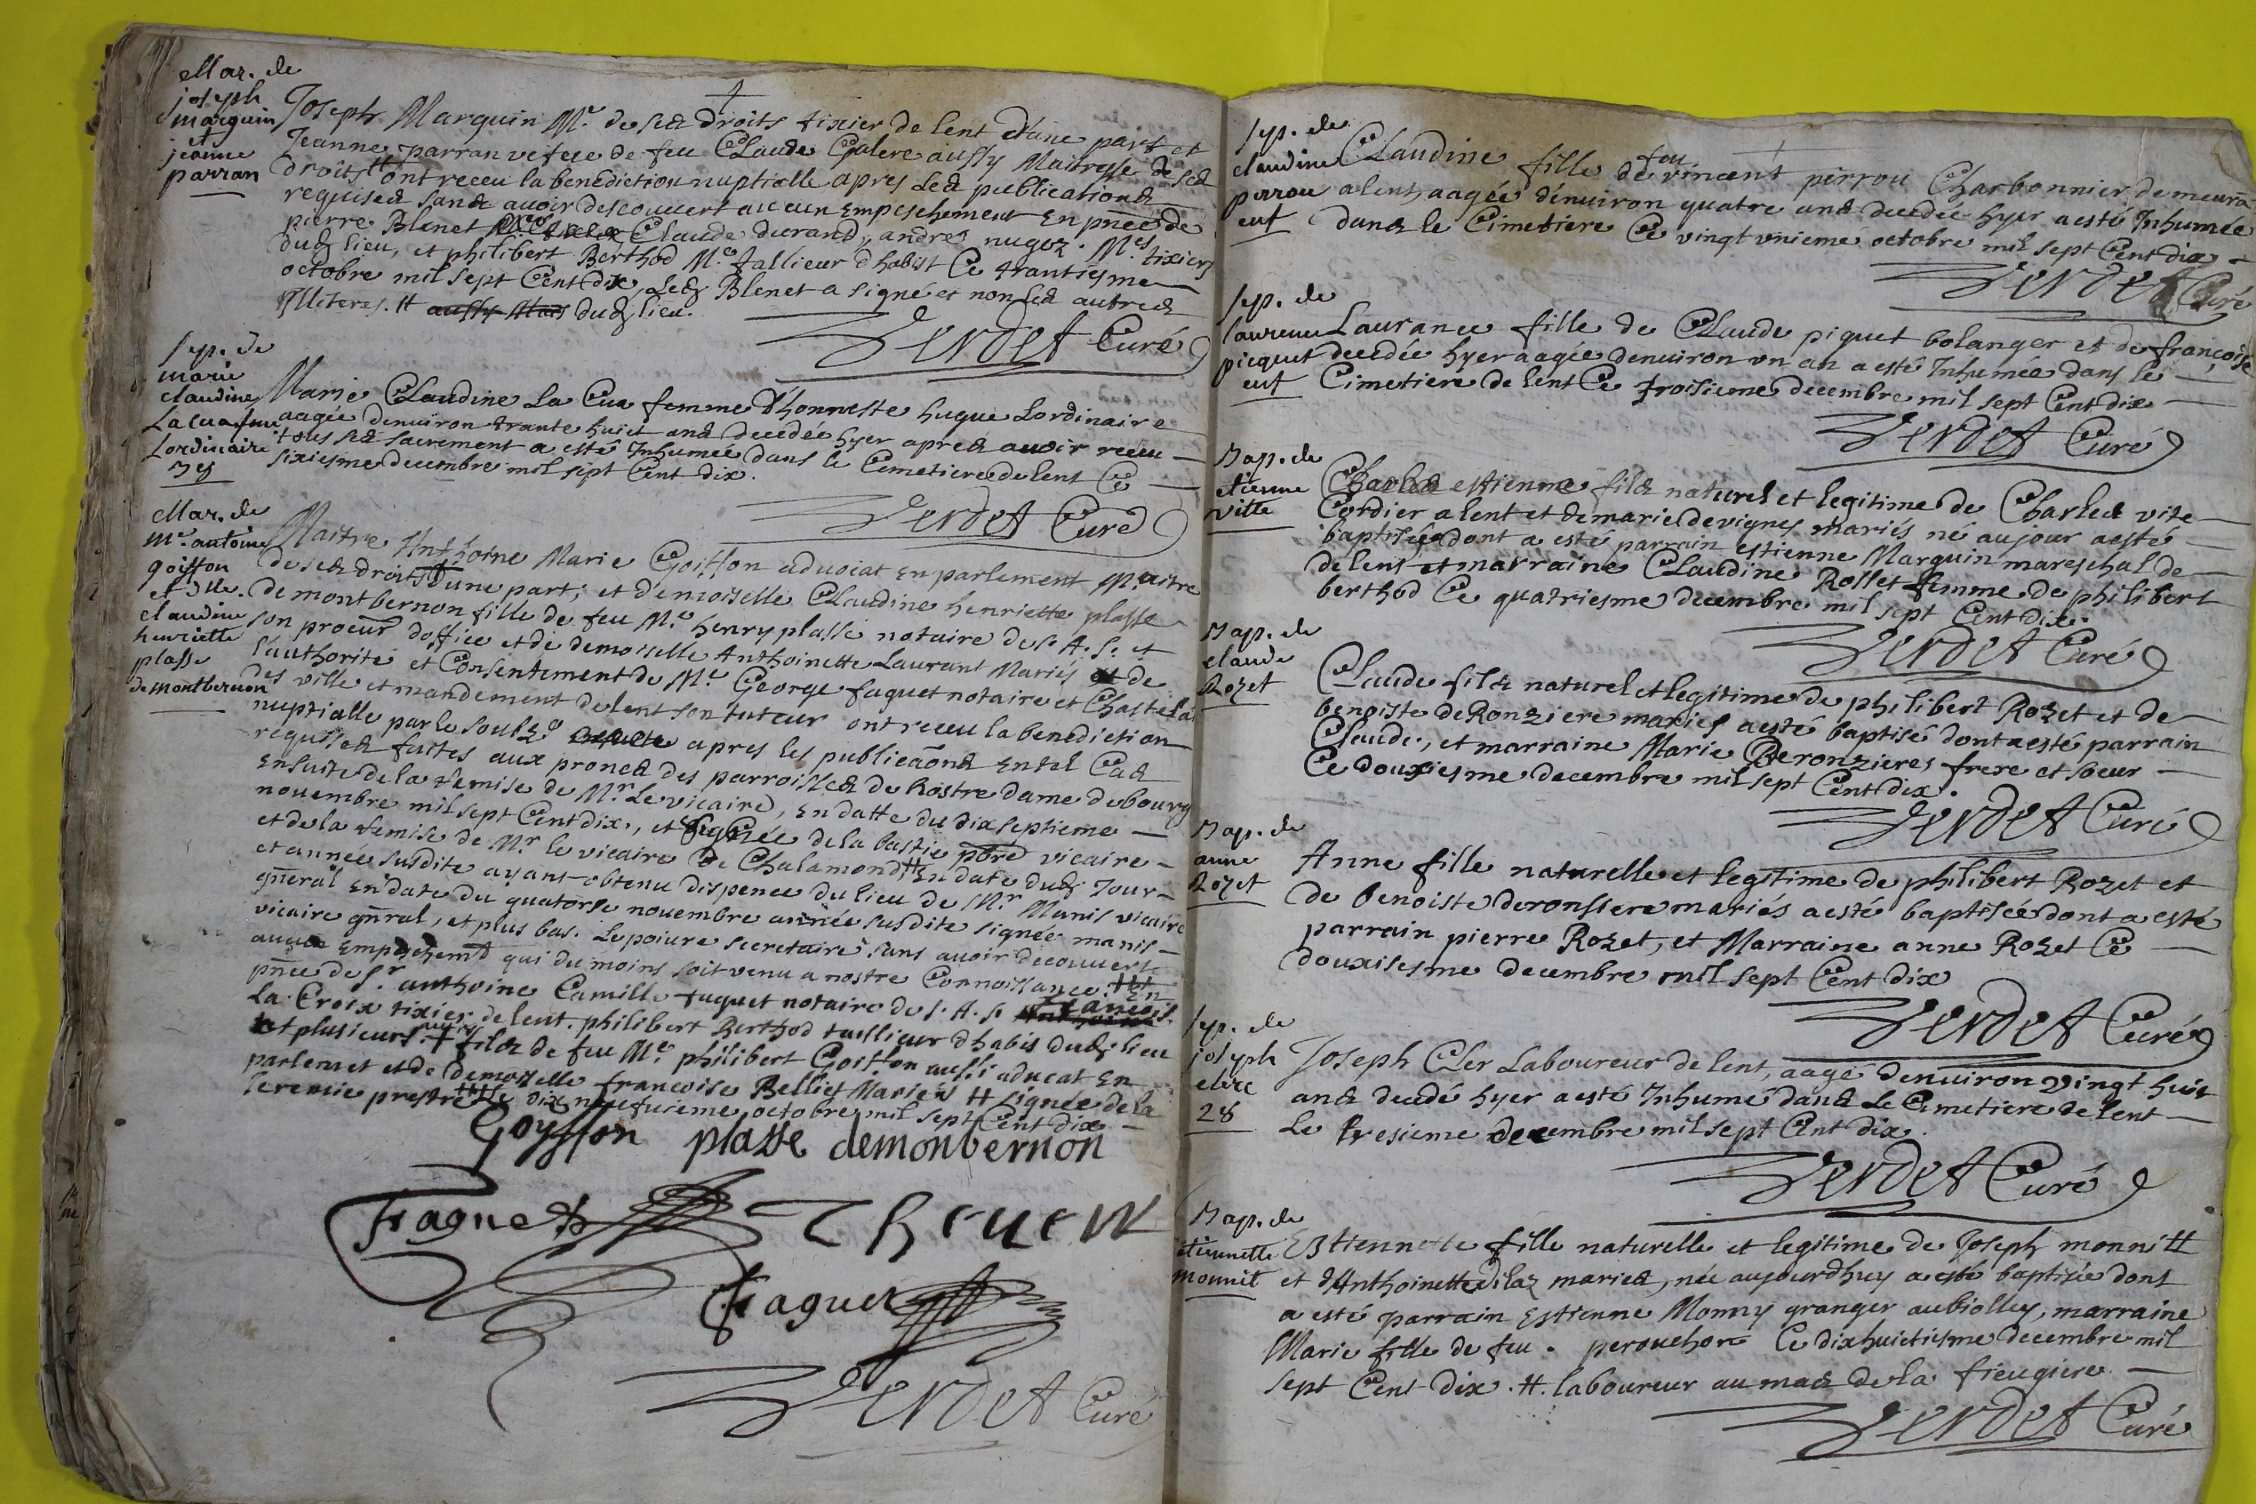 Mar. de
joseph
marguin
et
jeanne
parran
Joseph Marguin Me. de ses droits tixier de lent d'une part et
Jeanne parran vefve de feu Claude Galere aussy Maitresse de ses
droits # ont receu la benediction nuptialle apres les publications
requises sans avoir descouvert aucun Empeschement En pnce de
pierre Blenet Claude durand, andre nugoz Mes. tixiers
dud lieu, et philibert Berthod Me. tallieur d'habist Ce trantiesme
octobre mil sept Cent Dix, Led Blenet a signé et non les autres
Illiteres. # aussy dud lieu.
Verdet Curé
sep. de
marie
claudine
La cua fme
Lordinaire
38
Marie Claudine La Cua femme d'honneste hugue Lordinaire
aagée denuiron trante huict ans decedée hyer apres avoir receu
tous ses sacrement a esté Inhumée dans le Cemetiere de lent Ce
sixiesme decembre mil sept Cent dix.
Verdet Curé
Mar. de
Me. antoine
goisson
et Dlle.
claudine
henriette
plasse
de montbernon
Maitre Anthoine Marie Goisson aduocat En parlement Maitre
de ses droits d'une part; et demoiselle Claudine henriette plasse
de montbernon fille de feu Me. henry plasse notaire de S. A. S. et
son procur d'office et de demoiselle Anthoinette Laurant Mariés et de
l'authorité et Consentement de Me. George faguet notaire et Chastelai
des ville et mandement de lent son tuteur ont receu la benediction
nuptialle par le soubz. apres les publicãons En tel Cas
requises faites aux prones des parroisses de Nostre dame de bourg
Ensuite de la remise de Mr. Le vicaire, En datte du dix septieme
novembre mil sept Cent dix, et signée de la bastie pbre vicaire
et de la remise de Mr. le vicaire de Chalamond # En date dud Jour
et année susdite ayant obtenu dispence du lieu de Mr. Manis vicaire
gñeral En date du quatorse novembre année susdite signée manis
vicaire gñral, et plus bas. Lepoiure secretaire sans avoir decouvert
aucun Empeschemt qui du moins soit venu a nostre Connoissance. En
pnce de Sr. anthoine Camille faguet notaire de S. A. S. francois
La Croix tixier de lent. philibert Berthod taillieur d'habis dud lieu
et plusieurs autres + fils de feu Me. philibert Goisson aussi aducat En
parlemet et de demoiselle francoise Belliet Mariés # signée de la
Jeremie prestre Ce dix neufuieme octobre mil sept Cent dix
Goysson plasse demonbernon
Faguet Theuen
Faguet
Verdet Curé
sep. de
claudine
perrou
enf
Claudine fille de feu vincent pirrou Charbonnier demeurã
a lent, aagée d'enuiron quatre ans decedée hyer a esté Inhumée
dans le Cimetiere Ce vingt vnieme octobre mil sept Cent dix
Verdet Curé
sep. de
laurence
picquet
enf
Laurance fille de Claude piquet bolanger et de françoise
decedée hyer aagée denuiron vn an a esté Inhumée dans le
Cimetiere de lent Ce troisieme decembre mil sept Cent dix
Verdet Curé
Bap. de
etienne
vitte
Charles estienne fils naturel et legitime de Charles vite
Cordier a lent et de marie devignes mariés né aujour a esté
baptisé dont a esté parrain estienne Marguin mareschal de
de lent et marraine Claudine Rollet femme de philibert
berthod Ce quatriesme decembre mil sept Cent dix.
Verdet Curé
Bap. de
claude
Rozet
Claude fils naturel et legitime de philibert Rozet et de
benoiste deRonziere mariés a esté baptisé dont a esté parrain
Claude, et marraine Marie Deronzieres frere et soeur
Ce douxiesme decembre mil sept Cent dix.
Verdet Curé
Bap. de
anne
Rozet
Anne fille naturelle et legitime de philibert Rozet et
de benoiste deronssere mariés a esté baptisée dont a esté
parrain pierre Rozet, et Marraine anne Rozet Ce
douxisesme decembre mil sept Cent dix
Verdet Curé
sep. de
joseph
clerc
28
Joseph Cler Laboureur de lent, aagé denuiron vingt huit
ans decedé hyer a esté Inhumé dans Le Cimetiere de lent
Le tresieme decembre mil sept Cent dix.
Verdet Curé
Bap. de
etiennette
monnit
Estiennette fille naturelle et legitime de Joseph monni #
et d'Anthoinette dilaz mariés, née aujourdhuy a esté baptizée dont
a esté parrain Estienne Monny granger aubiolley, marraine
Marie fille de feu . perouchon Ce dixhuictiesme decembre mil
sept Cent Dix. #. laboureur au mas de la fieugiere
Verdet Curé